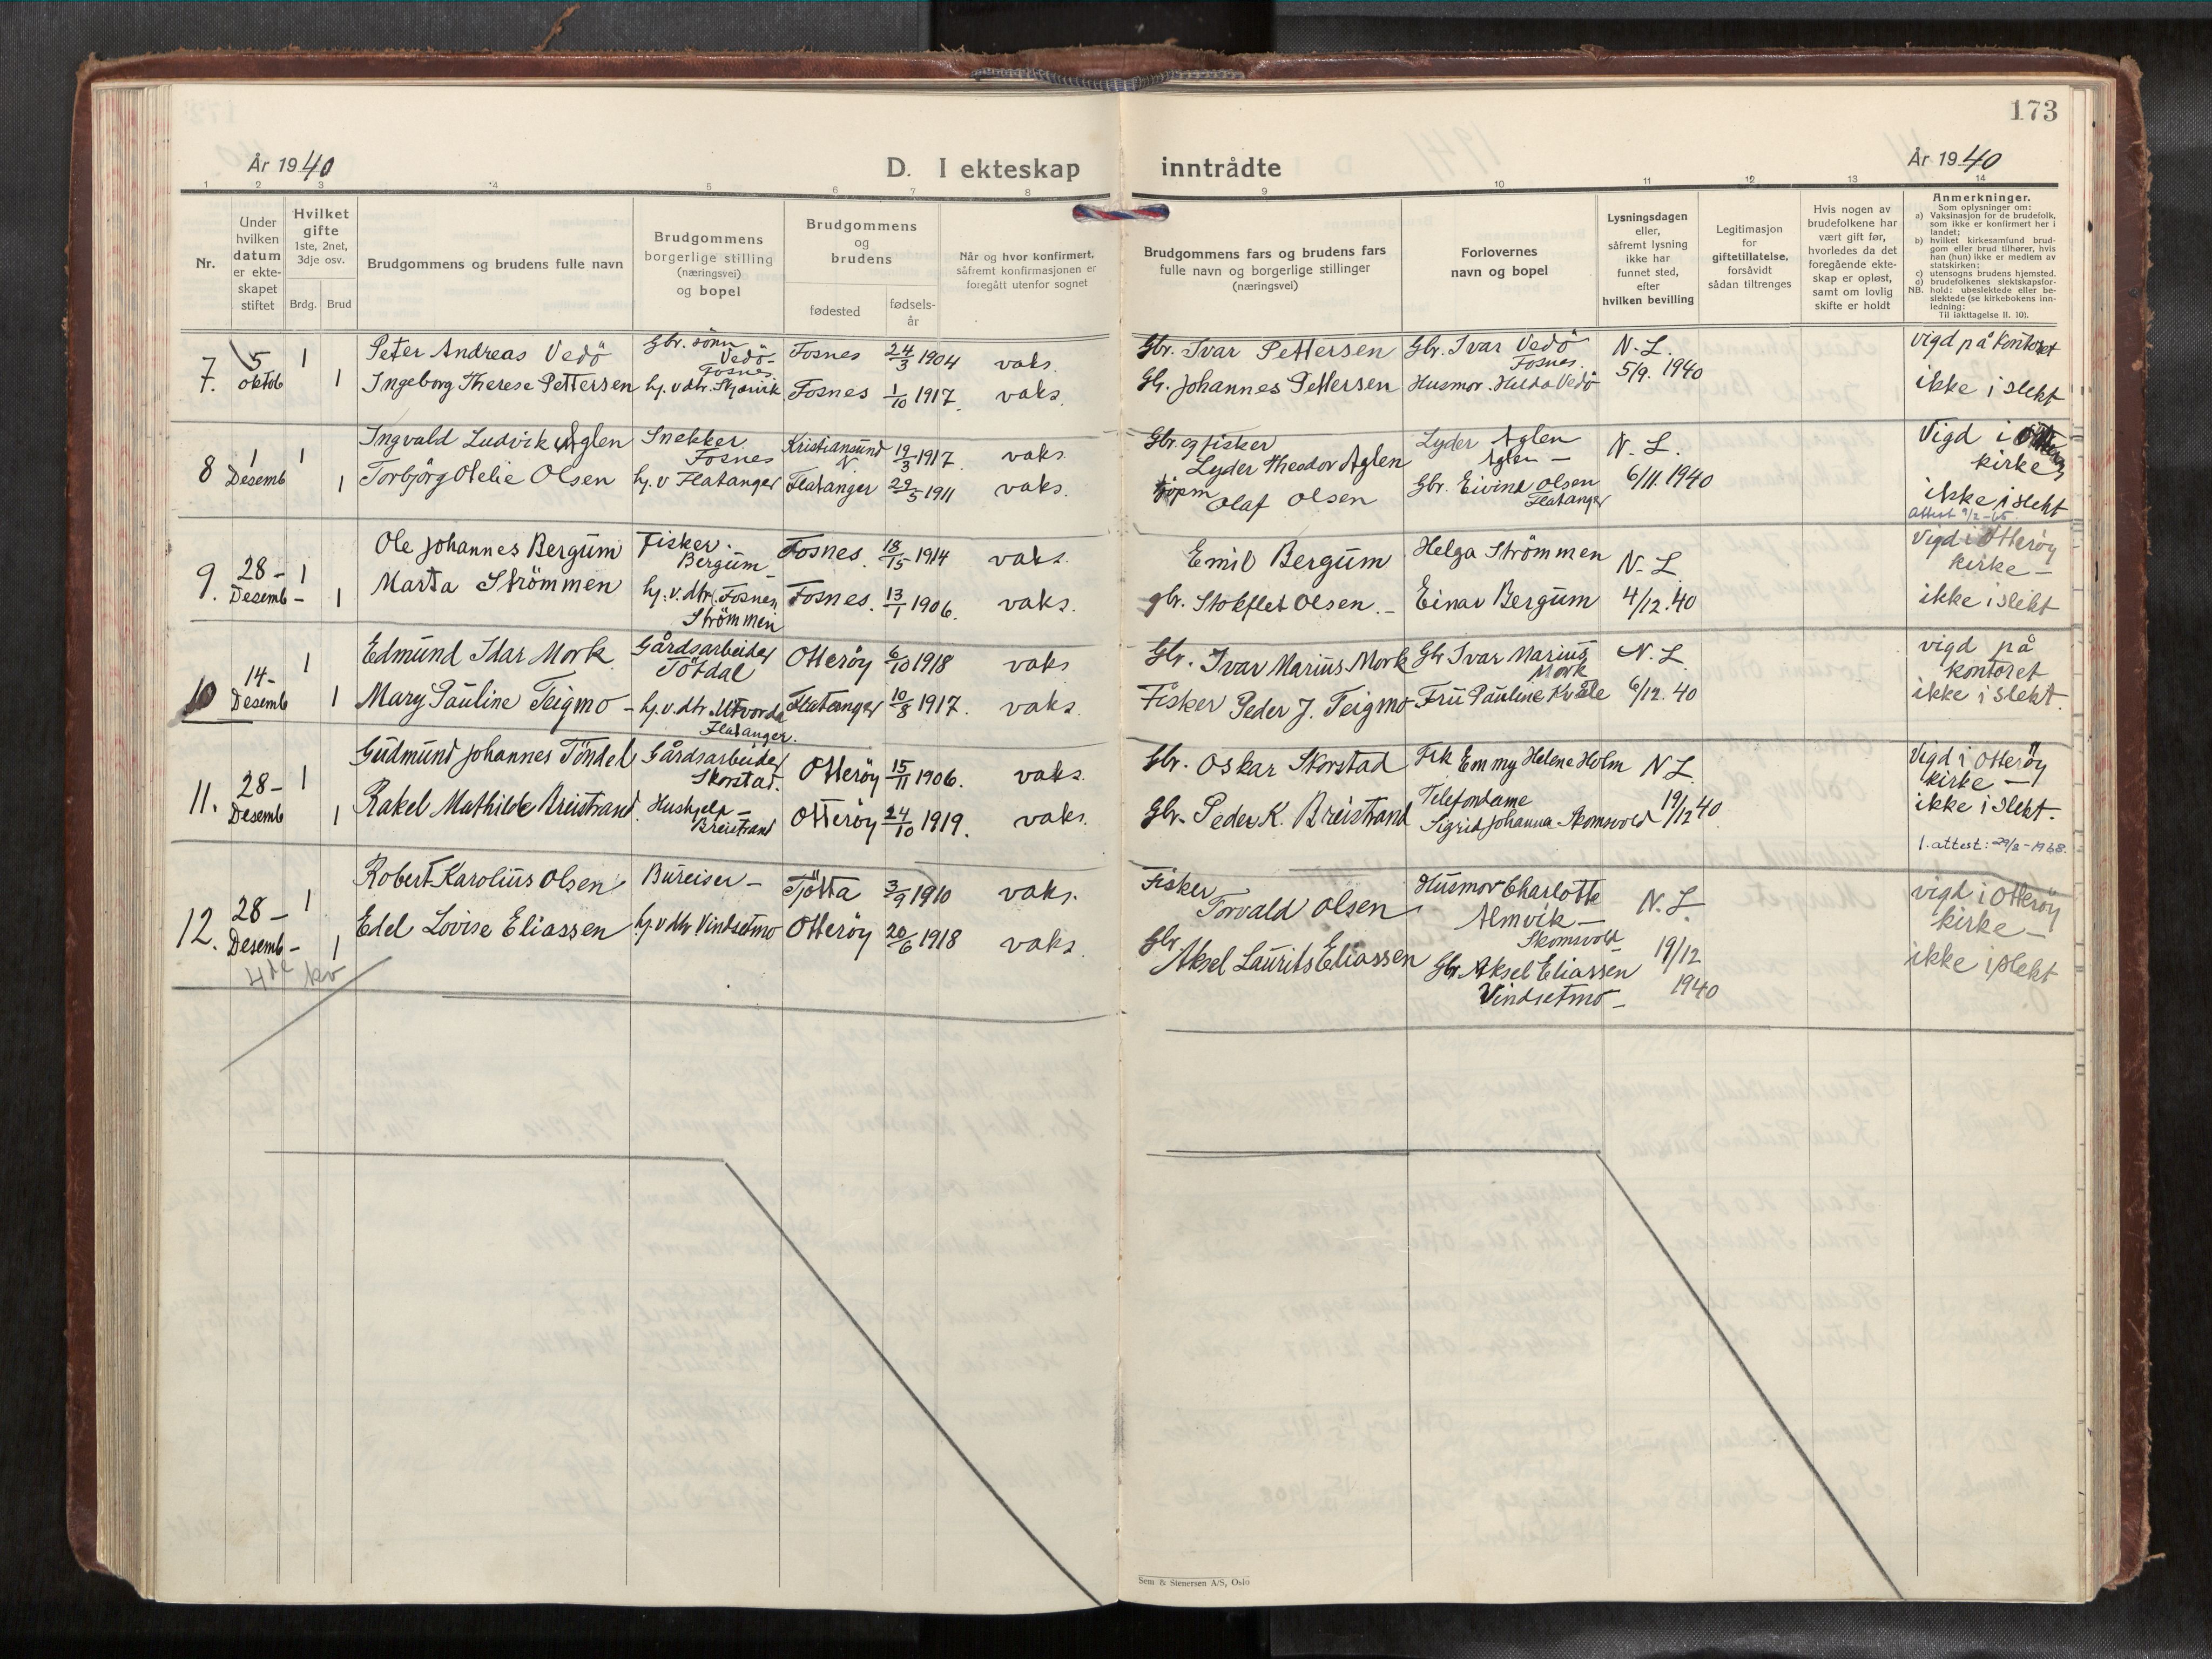 173
År 1940
D. I ekteskap inntrådte
År 1940
1 2 3 4 5 6 7 8 9 10 11 12 13 14
Nr.
Under hvilken datum er ekte-skapet stiftet
Hvilket gifte
1ste, 2net, 3dje osv.
Brdg. Brud
Brudgommens og brudens fulle navn
Brudgommens borgerlige stilling (næringsvei) og bopel
Brudgommens og brudens
fødested
fødsels-år
Når og hvor konfirmert, såfremt konfirmasjonen er foregått utenfor sognet
Brudgommens fars og brudens fars fulle navn og borgerlige stillinger (næringsvei)
Forlovernes navn og bopel
Lysningsdagen eller, såfremt lysning ikke har funnet sted, efter hvilken bevilling
Legitimasjon for giftetillatelse, forsåvidt sådan tiltrenges
Hvis nogen av brudefolkene har vært gift før, hvorledes da det foregående ekte-skap er opløst, samt om lovlig skifte er holdt
Anmerkninger.
Som oplysninger om:
a) Vaksinasjon for de brudefolk, som ikke er konfirmert her i landet;
b) hvilket kirkesamfund brud-gom eller brud tilhører, hvis han (hun) ikke er medlem av statskirken;
c) utensogns brudens hjemsted.
d) brudefolkenes slektskapsfor-hold: ubeslektede eller be-slektede (se kirkebokens inn-ledning:
NB. Til iakttagelse II. 10).
7. 5 oktob 1 Peter Andreas Vedö Gbr. sönn Vedö- Fosnes Fosnes 24/3 1904 vaks. Gbr. Ivar Pettersen Gbr. Ivar Vedö Fosnes. N. L. vigd på kontoret
1 Ingeborg Therese Pettersen hj. v. dtr. Fosnes 1/10 1917. vaks. Gbr. Johannes Pettersen Husmor. Hilda Vedö 5/9. 1940 ikke i slekt
8 1 Desemb 1 Ingvald Ludvik Aglen Snekker Fosnes Kristiansund N 19/3 1917. vaks. Gbr. og fisker Lyder Theodor Aglen Lyder Aglen Aglen – N. L. Vigd i kirke
1 Torbjörg Otelie Olsen hj. v Flatanger Flatanger 29/5 1911 vaks. Olaf Olsen Gbr. Eivind Olsen Flatanger 6/11. 1940 ikke i slekt
attest 9/2-65.
9. 28 – Desemb – 1 Ole Johannes Bergum Fisker. Bergum Fosnes. 18/15 1914 vaks. Emil Bergum Helga Strömmen N. L. Vigd i Otteröy kirke –
1 Marta Strömmen hj. v. dtr. Fosnes Strömmen Fosnes. 13/1 1906. vaks. gbr. Stokflet Olsen. – Einar Bergum 4/12. 40 ikke i slekt
10 14 – Desemb 1 Edmund Idar Mork Gårdsarbeider Tötdal Otteröy 6/10 1918 vaks Gbr. Ivar Marius Mork Gbr Ivar Marius Mork N. L. vigd på kontoret
1 Mary Pauline Teigmo – hj. v. dtr. Utvorda Flatanger. Flatanger 10/8 1917. vaks. Fisker Peder J. Teigmo Fru Pauline Kvåle 6/12. 40 ikke i slekt.
11. 28 – Desemb 1 Gudmund Johannes Töndel Gårdsarbeider Skorstad. Otteröy 15/11 1906. vaks. Gbr. Oskar Skorstad Frk Emmy Helene Holm N L. Vigd i Otteröy kirke –
1 Rakel Mathilde Breistrand. Hushjelp – Breistrand Otteröy 24/10 1919. vaks. Gbr. Peder K. Breistrand Telefondame Sigrid Johanna Skomsvold 19/12 40 ikke i slekt.
1. attest: 29/8-1968.
12. 28 – Desemb – 1 Robert Karolius Olsen Bureiser – Tjötta 3/9 1910 vaks. Fisker Torvald Olsen Husmor Charlotte Almvik – Skomsvold N. L. vigd i Otteröy kirke –
1 Edel Lovise Eliassen hj. v dtr Vindsetmo Otteröy 20/6 1918 vaks. Gbr Aksel Laurits Eliassen Gbr. Aksel Eliassen Vindsetmo – 19/12 1940 ikke i slekt
4de kv
Sem & Stenersen A/S, Oslo